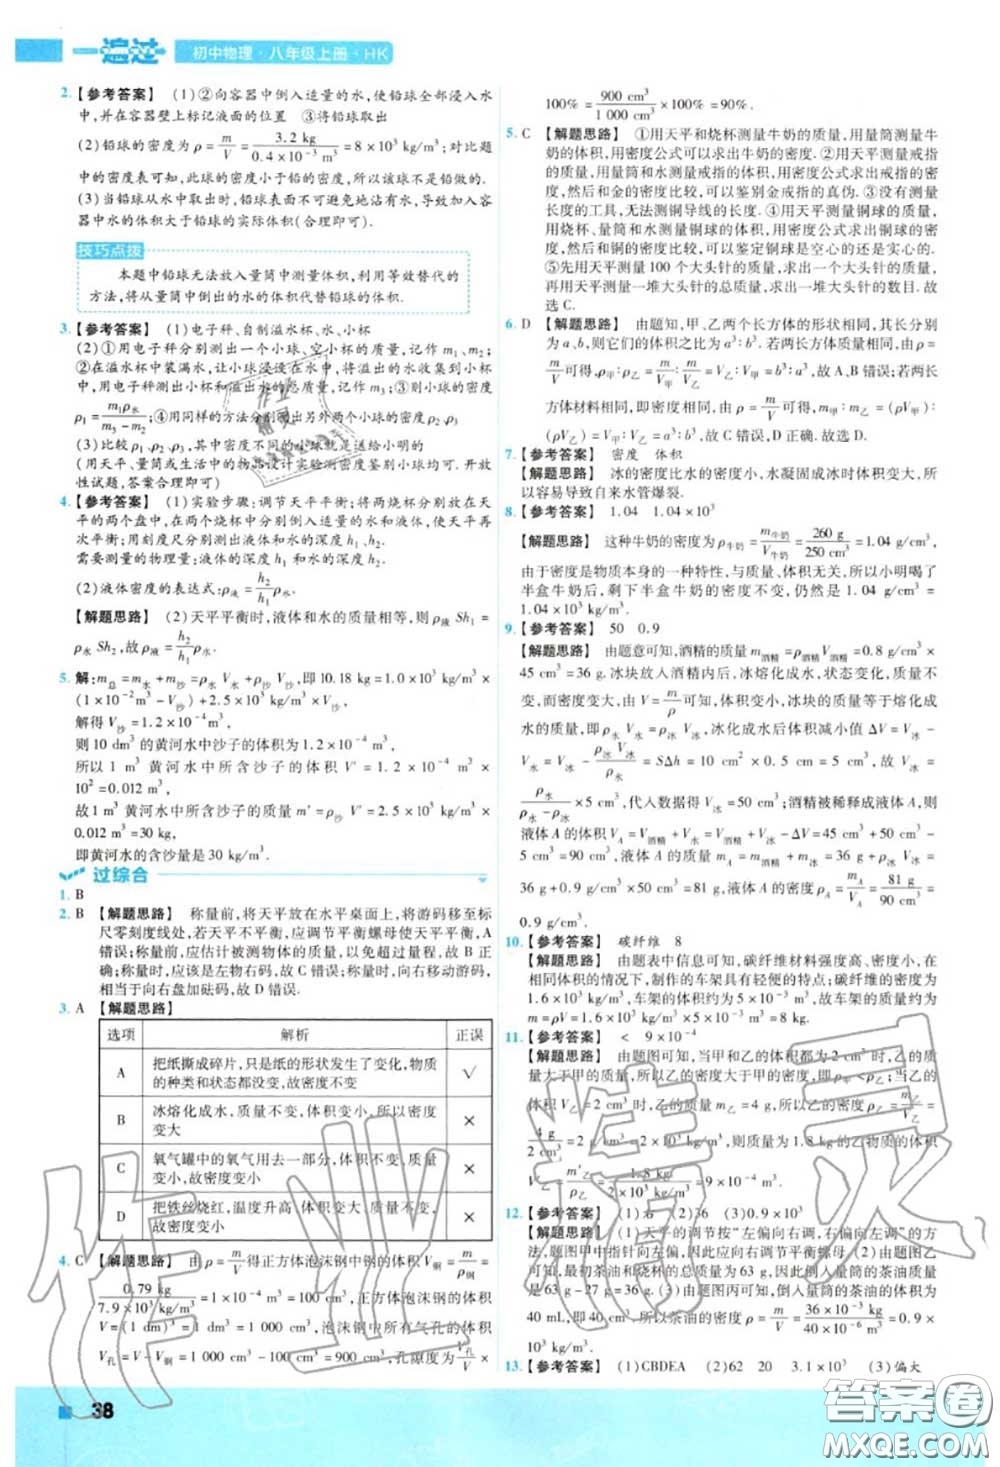 一遍过 初中物理·八年级上册·HK
2.【参考答案】 (1)②向容器中倒入适量的水,使铅球全部浸入水
中,并在容器壁上标记液面的位置 ③将铅球取出
(2)铅球的密度为ρ = m/V = 3.2 kg/(0.4×10⁻³ m³) = 8×10³ kg/m³;对比题
中的密度表可知,此球的密度小于铅的密度,所以不是铅做的.
(3)当铅球从水中取出时,铅球表面不可避免地沾有水,导致加入容
器中水的体积大于铅球的实际体积(合理即可).
技巧点拨
本题中铅球无法放入量筒中测量体积,利用等效替代的
方法,将从量筒中倒出的水的体积代替铅球的体积.
3.【参考答案】 (1)电子秤、自制溢水杯、水、小杯
(2)①用电子秤分别测出一个小球、空小杯的质量,记作 m₁、m₂.
②在溢水杯中装满水,让小球浸没在水中,将溢出的水收集到小杯
中,用电子秤测出小杯和溢出水的总质量,记作 m₃.③则小球的密度
ρ₁ = m₁ρ水/(m₃ - m₂);④用同样的方法分别测出另外两个小球的密度
(3)比较 ρ₁、ρ₂、ρ₃,其中密度不同的小球就是送给小明的
(用天平、量筒或生活中的物品设计实验测密度鉴别小球均可.开放
性试题,答案合理即可)
4.【参考答案】 (1)实验步骤:调节天平平衡,将两烧杯分别放在天
平的两个盘中,在两个烧杯中分别倒入适量的水和液体,使天平
再次平衡;用刻度尺分别测出水和液体的深度 h₂、h₁.
需要测量的物理量:液体的深度 h₁ 和水的深度 h₂.
(2)液体密度的表达式:ρ液 = h₂/h₁ ρ水.
【解题思路】 (2)天平平衡时,液体和水的质量相等,则 ρ液 Sh₁ =
ρ水 Sh₂,故 ρ液 = h₂/h₁ ρ水.
5. 解:m总 = m水 + m沙 = ρ水V水 + ρ沙V沙,即 10.18 kg = 1.0×10³ kg/m³ ×
(1×10⁻² m³ - V沙) + 2.5×10³ kg/m³ × V沙,
解得 V沙 = 1.2×10⁻⁴ m³,
则 10 dm³ 的黄河水中沙子的体积为 1.2×10⁻⁴ m³,
所以 1 m³ 黄河水中所含沙子的体积 V′ = 1.2×10⁻⁴ m³ ×
10² = 0.012 m³,
故 1 m³ 黄河水中所含沙子的质量 m′ = ρ沙V′ = 2.5×10³ kg/m³ ×
0.012 m³ = 30 kg,
即黄河水的含沙量是 30 kg/m³.
过综合
1. B
2. B 【解题思路】 称量前,将天平放在水平桌面上,将游码移至标
尺零刻度线处,若天平不平衡,应调节平衡螺母使天平平衡,A
错误;称量前,应估计被测物体的质量,以免超过量程,故 B 正
确;称量时,应该是左物右码,故 C 错误;称量时,向右移动游码,
相当于向右盘加砝码,故 D 错误.
3. A 【解题思路】
选项 解析 正误
A 把纸撕成碎片,只是纸的形状发生了变化,物质
的种类和状态都没变,故密度不变 √
B 冰熔化成水,质量不变,体积变小,所以密度
变大 ×
C 氧气罐中的氧气用去一部分,体积不变,质量
变小,故密度变小 ×
D 把铁丝烧红,温度升高,体积变大,质量不变,
故密度变小 ×
4. C 【解题思路】 由 ρ = m/V 得正方体泡沫钢中钢的体积 V钢 = m/ρ钢 =
0.79 kg/(7.9×10³ kg/m³) = 1×10⁻⁴ m³ = 100 cm³,正方体泡沫钢的体积
V = (1 dm)³ = 1 dm³ = 1 000 cm³,泡沫钢中所有气孔的体积
V孔 = V - V钢 = 1 000 cm³ - 100 cm³ = 900 cm³,孔隙度为 V孔/V ×
100% = 900 cm³/1 000 cm³ × 100% = 90%.
5. C 【解题思路】 ①用天平和烧杯测量牛奶的质量,用量筒测量牛
奶的体积,用密度公式可以求出牛奶的密度.②用天平测量戒指
的质量,用量筒和水测量戒指的体积,用密度公式求出戒指的密
度,然后和金的密度比较,可以鉴别金戒指的真伪.③没有测量
长度的工具,无法测铜导线的长度.④用天平测量铜球的质量,
用烧杯、量筒和水测量铜球的体积,用密度公式求出铜球的密
度,然后和铜的密度比较,可以鉴定铜球是空心的还是实心的.
⑤先用天平测量 100 个大头针的质量,求出一个大头针的质量,
再用天平测量一堆大头针的总质量,求出一堆大头针的数目.故
选 C.
6. D 【解题思路】 由题知,甲、乙两个长方体的形状相同,其长分别
为 a、b,则它们的体积之比为 a³∶b³.若两长方体质量相同,由 ρ =
m/V 可得,ρ甲∶ρ乙 = V乙∶V甲 = b³∶a³,故 A、B 错误;若两长
方体材料相同,即密度相同,由 ρ = m/V 可得,m甲∶m乙 = (ρV甲)∶
(ρV乙) = V甲∶V乙 = a³∶b³,故 C 错误,D 正确.故选 D.
7.【参考答案】 密度 体积
【解题思路】 冰的密度比水的密度小,水凝固成冰时体积变大,
所以容易导致自来水管爆裂.
8.【参考答案】 1.04 1.04×10³
【解题思路】 这种牛奶的密度为 ρ牛奶 = m牛奶/V牛奶 = 260 g/250 cm³ = 1.04 g/cm³,
由于密度是物质本身的一种特性,与质量、体积无关,所以小明喝了
半盒牛奶,剩下半盒牛奶的密度不变,仍然是 1.04 g/cm³ =
1.04×10³ kg/m³.
9.【参考答案】 50 0.9
【解题思路】 由题意可知,酒精的质量 m酒精 = ρ酒精V酒精 = 0.8 g/cm³ ×
45 cm³ = 36 g.冰块放入酒精内后,冰熔化成水,状态变化,质量不变,
而密度变大,由 V = m/ρ 可知,体积变小,冰块的质量等于熔化成
水的质量,即 ρ水 V水 = ρ冰 V冰,冰化成水后体积减小量 ΔV = V冰 -
V水 = V冰 - ρ冰 V冰/ρ水 = SΔh = 10 cm² × 0.5 cm = 5 cm³,则 V冰 =
ρ水/(ρ水 - ρ冰) ×5 cm³,代入数据得 V冰 = 50 cm³;酒精被稀释成液体 A,则
液体 A 的体积 V_A = V酒精 + V水 = V酒精 + V冰 - ΔV = 45 cm³ + 50 cm³ -
5 cm³ = 90 cm³,液体 A 的质量 m_A = m酒精 + m冰 = m酒精 + ρ冰V冰 =
36 g + 0.9 g/cm³ × 50 cm³ = 81 g,液体 A 的密度 ρ_A = m_A/V_A = 81 g/90 cm³ =
0.9 g/cm³.
10.【参考答案】 碳纤维 8
【解题思路】 由题表中信息可知,碳纤维材料强度高、密度小,在
相同体积的情况下,制作的车架具有轻便的特点;碳纤维的密度为
1.6×10³ kg/m³,车架的体积为 5×10⁻³ m³,故碳纤维车架的质量为
m = ρV = 1.6×10³ kg/m³ × 5×10⁻³ m³ = 8 kg.
11.【参考答案】 < 9×10⁻⁴
【解题思路】 由题图可知,当甲和乙的体积都为 2 cm³ 时,乙的质
量大于甲的质量,所以乙的密度大于甲的密度,即 ρ甲 < ρ乙;当乙的
体积 V乙 = 2 cm³ 时,乙的质量 m乙 = 4 g,所以乙的密度 ρ乙 = m乙/V乙 =
4 g/2 cm³ = 2 g/cm³ = 2×10³ kg/m³,所以质量为 1.8 kg 的乙物质的体积
V′乙 = m′乙/ρ乙 = 1.8 kg/(2×10³ kg/m³) = 9×10⁻⁴ m³.
12.【参考答案】 (1)右 (2)36 (3)0.9×10³
【解题思路】 (1)天平的调节按“左偏向右调,右偏向左调”的方
法,题图甲中指针向左偏,因此应向右调节平衡螺母.(2)由题图乙
可知,最初茶油和烧杯的总质量为 63 g,因此倒入量筒的茶油质量
是 63 g - 27 g = 36 g.(3)由题图丙可知,倒入量筒中的茶油体积为
40 mL,即 40 cm³,所以茶油的密度为 ρ = m/V = (36×10⁻³ kg)/(40×10⁻⁶ m³) = 0.9×
10³ kg/m³.
13.【参考答案】 (1)CBDEA (2)62 20 3.1×10³ (3)偏大
38
作业精灵
作业精灵
答案圈
MXQE.COM